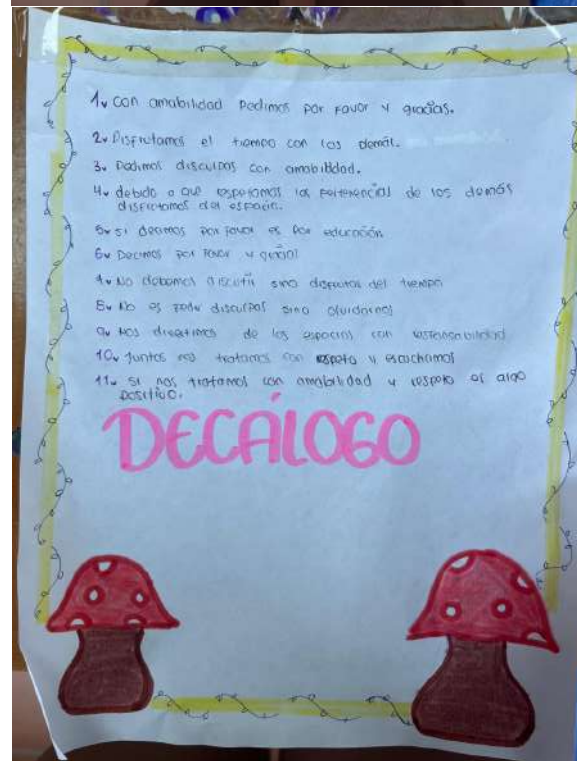 1. Con amabilidad Pedimos por favor y gracias.
2. Disfrutamos el tiempo con los demás.
3. Pedimos disculpas con amabilidad.
4. debido a que respetamos las pertenencias de los demás
disfrutamos del espacio.
5. si decimos por favor es por educación
6. Decimos por favor y gracias
7. No debemos discutir sino disfrutar del tiempo
8. No es pedir disculpas sino olvidarnos
9. Nos divertimos de los espacios con responsabilidad
10. Juntos nos tratamos con respeto y escuchamos
11. si nos tratamos con amabilidad y respeto es algo
positivo.
DECÁLOGO